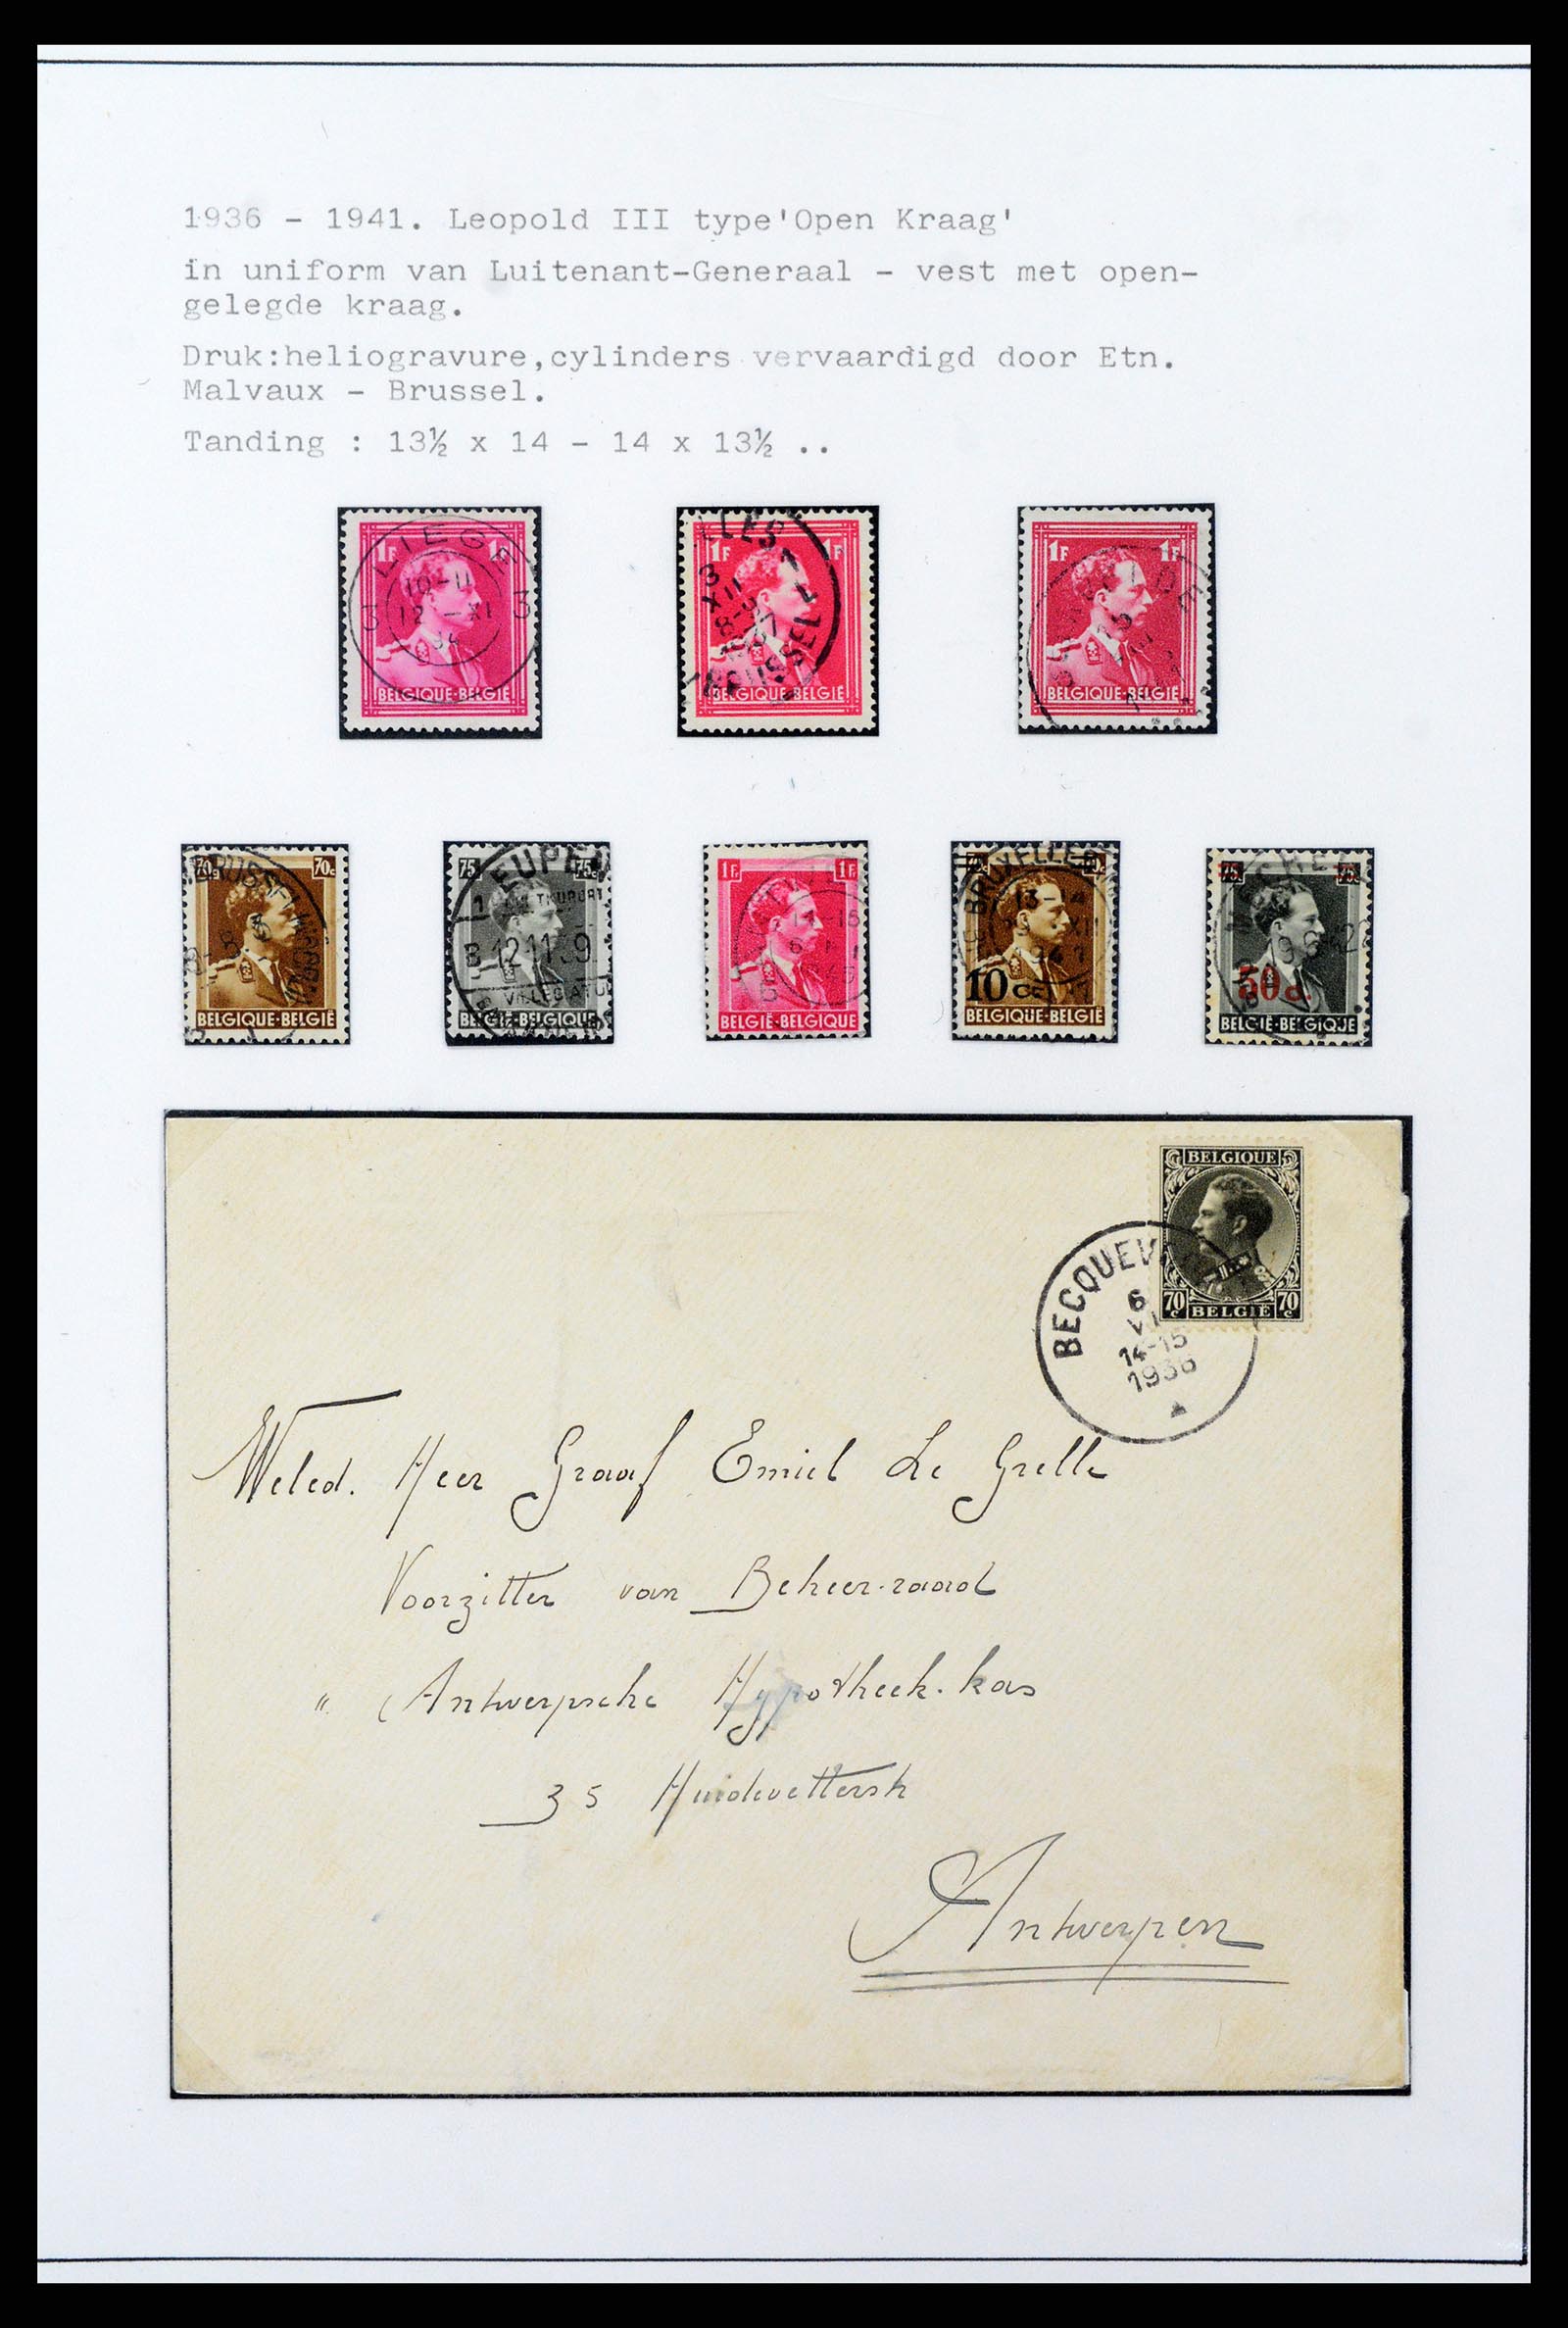 1936 - 1941. Leopold III type'Open Kraag'
in uniform van Luitenant-Generaal - vest met open-
gelegde kraag.
Druk:heliogravure,cylinders vervaardigd door Etn.
Malvaux - Brussel.
Tanding : 13½ x 14 - 14 x 13½ ..
1F 1F
LIEGE
10-11
3 12-XI 3
BELGIQUE-BELGIË
1F 1F
3
XII
8-9
1937
BELGIQUE-BELGIË
1F 1F
BELGIQUE-BELGIË
70c 70c
BELGIQUE-BELGIË
75c 75c
EUPEN
12 11 39
BELGIË-BELGIQUE
1F 1F
BELGIË-BELGIQUE
BRUXELLES
13-14
10 c
BELGIQUE-BELGIË
75c 75c
50 c.
BELGIË-BELGIQUE
BELGIQUE
70c BELGIË 70c
6
VI
14-15
1936
Weled. Heer Graaf Emiel Le Grelle
Voorzitter van Beheer-raad
" Antwerpsche Hypotheek-kas
35 Huidevetterstr
Antwerpen